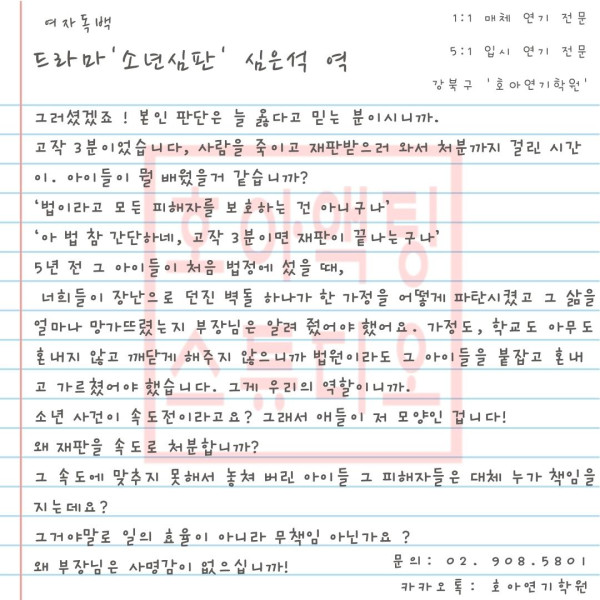 여자독백
1:1 매체 연기 전문
드라마 '소년심판' 심은석 역
5:1 입시 연기 전문
강북구 '호아연기학원'
그러셨겠죠 ! 본인 판단은 늘 옳다고 믿는 분이시니까.
고작 3분이었습니다, 사람을 죽이고 재판받으러 와서 처분까지 걸린 시간
이. 아이들이 뭘 배웠을거 같습니까?
'법이라고 모든 피해자를 보호하는 건 아니구나'
'아 법 참 간단하네, 고작 3분이면 재판이 끝나는구나'
5년 전 그 아이들이 처음 법정에 섰을 때,
너희들이 장난으로 던진 벽돌 하나가 한 가정을 어떻게 파탄시켰고 그 삶을
얼마나 망가뜨렸는지 부장님은 알려 줬어야 했어요. 가정도, 학교도 아무도
혼내지 않고 깨닫게 해주지 않으니까 법원이라도 그 아이들을 붙잡고 혼내
고 가르쳤어야 했습니다. 그게 우리의 역할이니까.
소년 사건이 속도전이라고요? 그래서 애들이 저 모양인 겁니다!
왜 재판을 속도로 처분합니까?
그 속도에 맞추지 못해서 놓쳐 버린 아이들 그 피해자들은 대체 누가 책임을
지는데요?
그거야말로 일의 효율이 아니라 무책임 아닌가요 ?
왜 부장님은 사명감이 없으십니까!
문의: 02. 908.5801
카카오톡: 호아연기학원
호아액팅
스튜디오